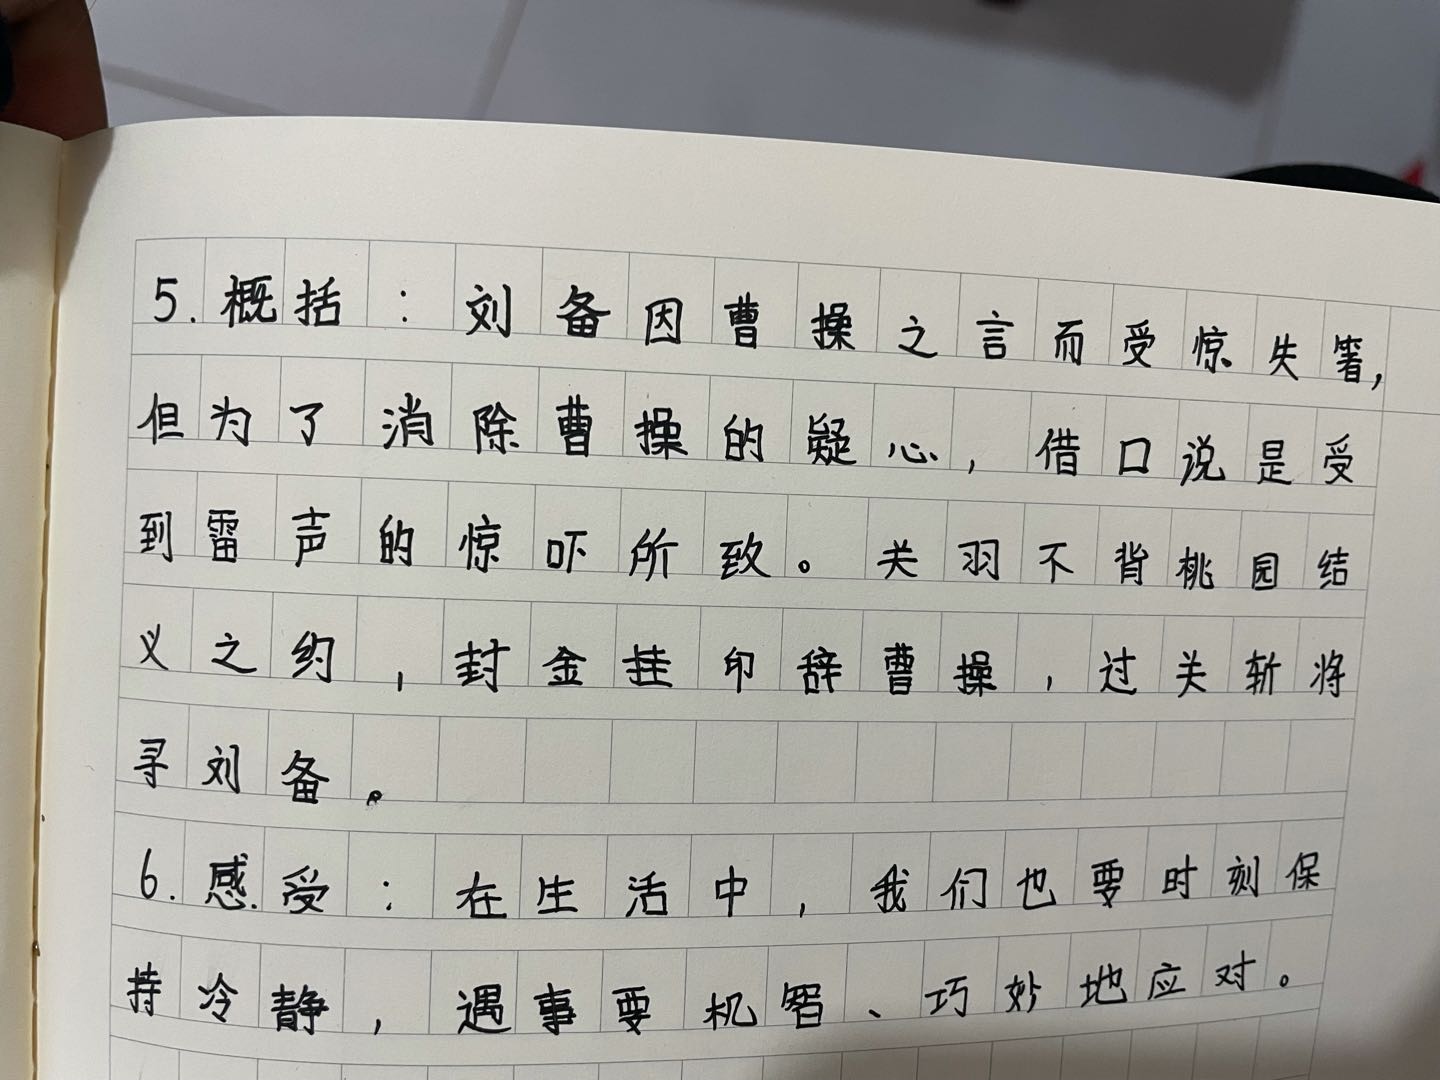 5.概括：刘备因曹操之言而受惊失箸，
但为了消除曹操的疑心，借口说是受
到雷声的惊吓所致。关羽不背桃园结
义之约，封金挂印辞曹操，过关斩将
寻刘备。
6.感受：在生活中，我们也要时刻保
持冷静，遇事要机智、巧妙地应对。